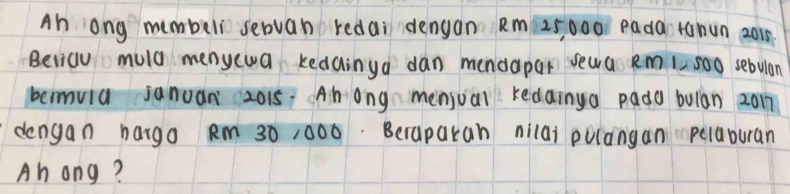 Ah ong membeli sebuah kedai dengan RM 25,000 pada tahun 2015.
Beliau mula menyewa kedainya dan mendapat sewa RM 1,500 sebulan
bermula januari 2015. Ah Ong menjual kedainya pada bulan 2017
dengan harga RM 30,000. Berapakah nilai pulangan pelaburan
Ah ong?